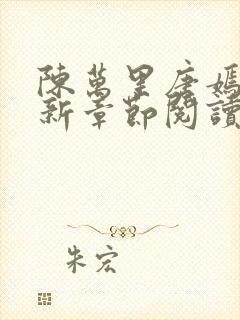 陳萬里唐嫣
新章節閱讀
朱宏